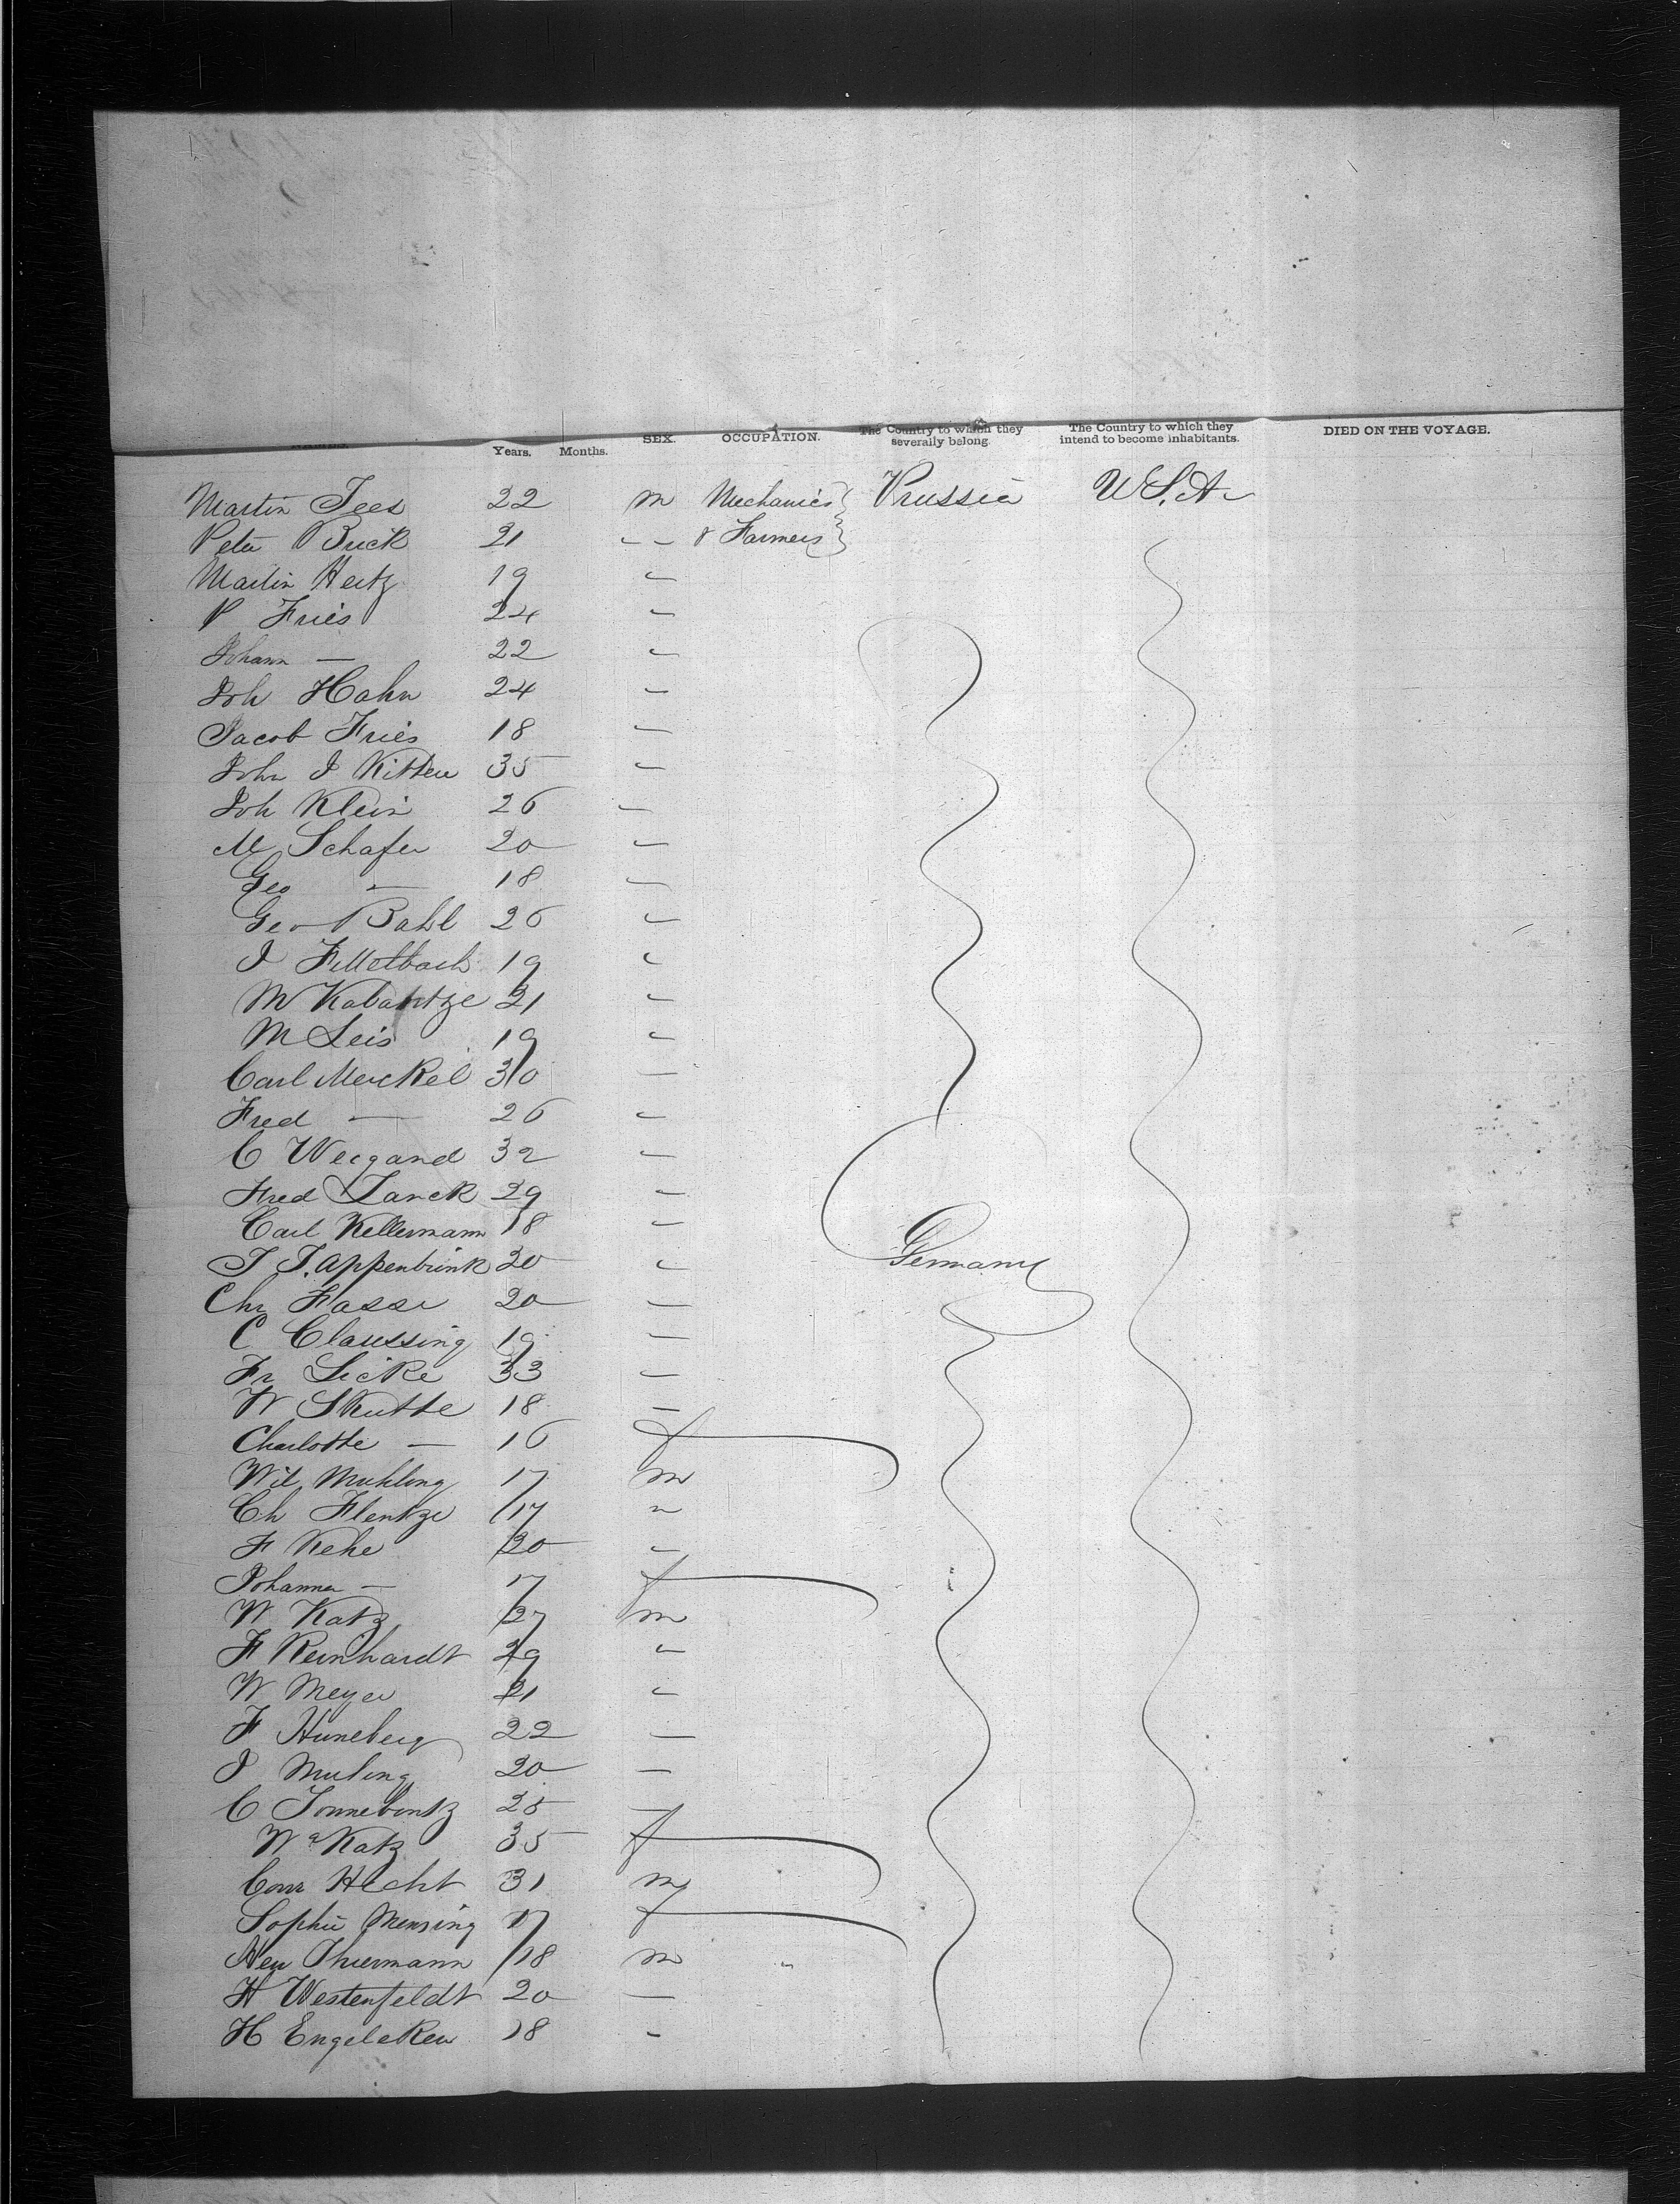 Years. Months. SEX. OCCUPATION. The Country to which they severally belong. The Country to which they intend to become inhabitants. DIED ON THE VOYAGE.
Martin Tees 22 m Mechanics Prussia U.S.A.
Peter Buck 21 — — & Farmers
Martin Hertz 19 —
P Fries 24 —
Johann — 22 —
Joh Hahn 24 —
Jacob Fries 18 —
John J Kitten 35 —
Joh Klein 26 —
M Schafer 20 —
Geo — 18 —
Geo Bahl 26 —
J Fittelbach 19 —
M Kabantze 21 —
M Leis 19 —
Carl Merckel 30 —
Fred — 26 —
C Weigand 32 —
Fred Zanck 29 —
Carl Kellermann 18 —
J J. Appenbrink 30 — Germany
Chr Fasse 20 —
C Claussing 19 —
Fr Sicke 33 —
W Skutte 18 —
Charlotte — 16 f
Wil Muhling 17 m
Ch Flentze 17 "
F Kehe 20 —
Johanna — 17 f
W Katz 27 m
F Reinhardt 29 —
W Meyer 21 —
F Huneberg 22 —
J Muling 20 —
C Sonnebontz 25 —
Wa Katz 35 f
Conr Hecht 31 m
Sophie Mensing 17 f
Hen Thiermann 18 m
H Westenfeldt 20 —
H Engeleken 18 -